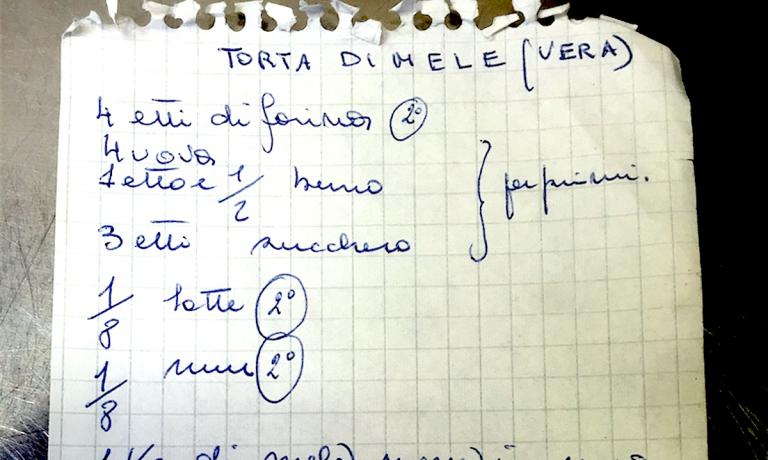 TORTA DI MELE (VERA)
4 etti di farina 2°
4 uova
1 etto e 1/2 burro } per primi.
3 etti zucchero
1/8 latte 2°
1/8 rum 2°
1 Kg di mele